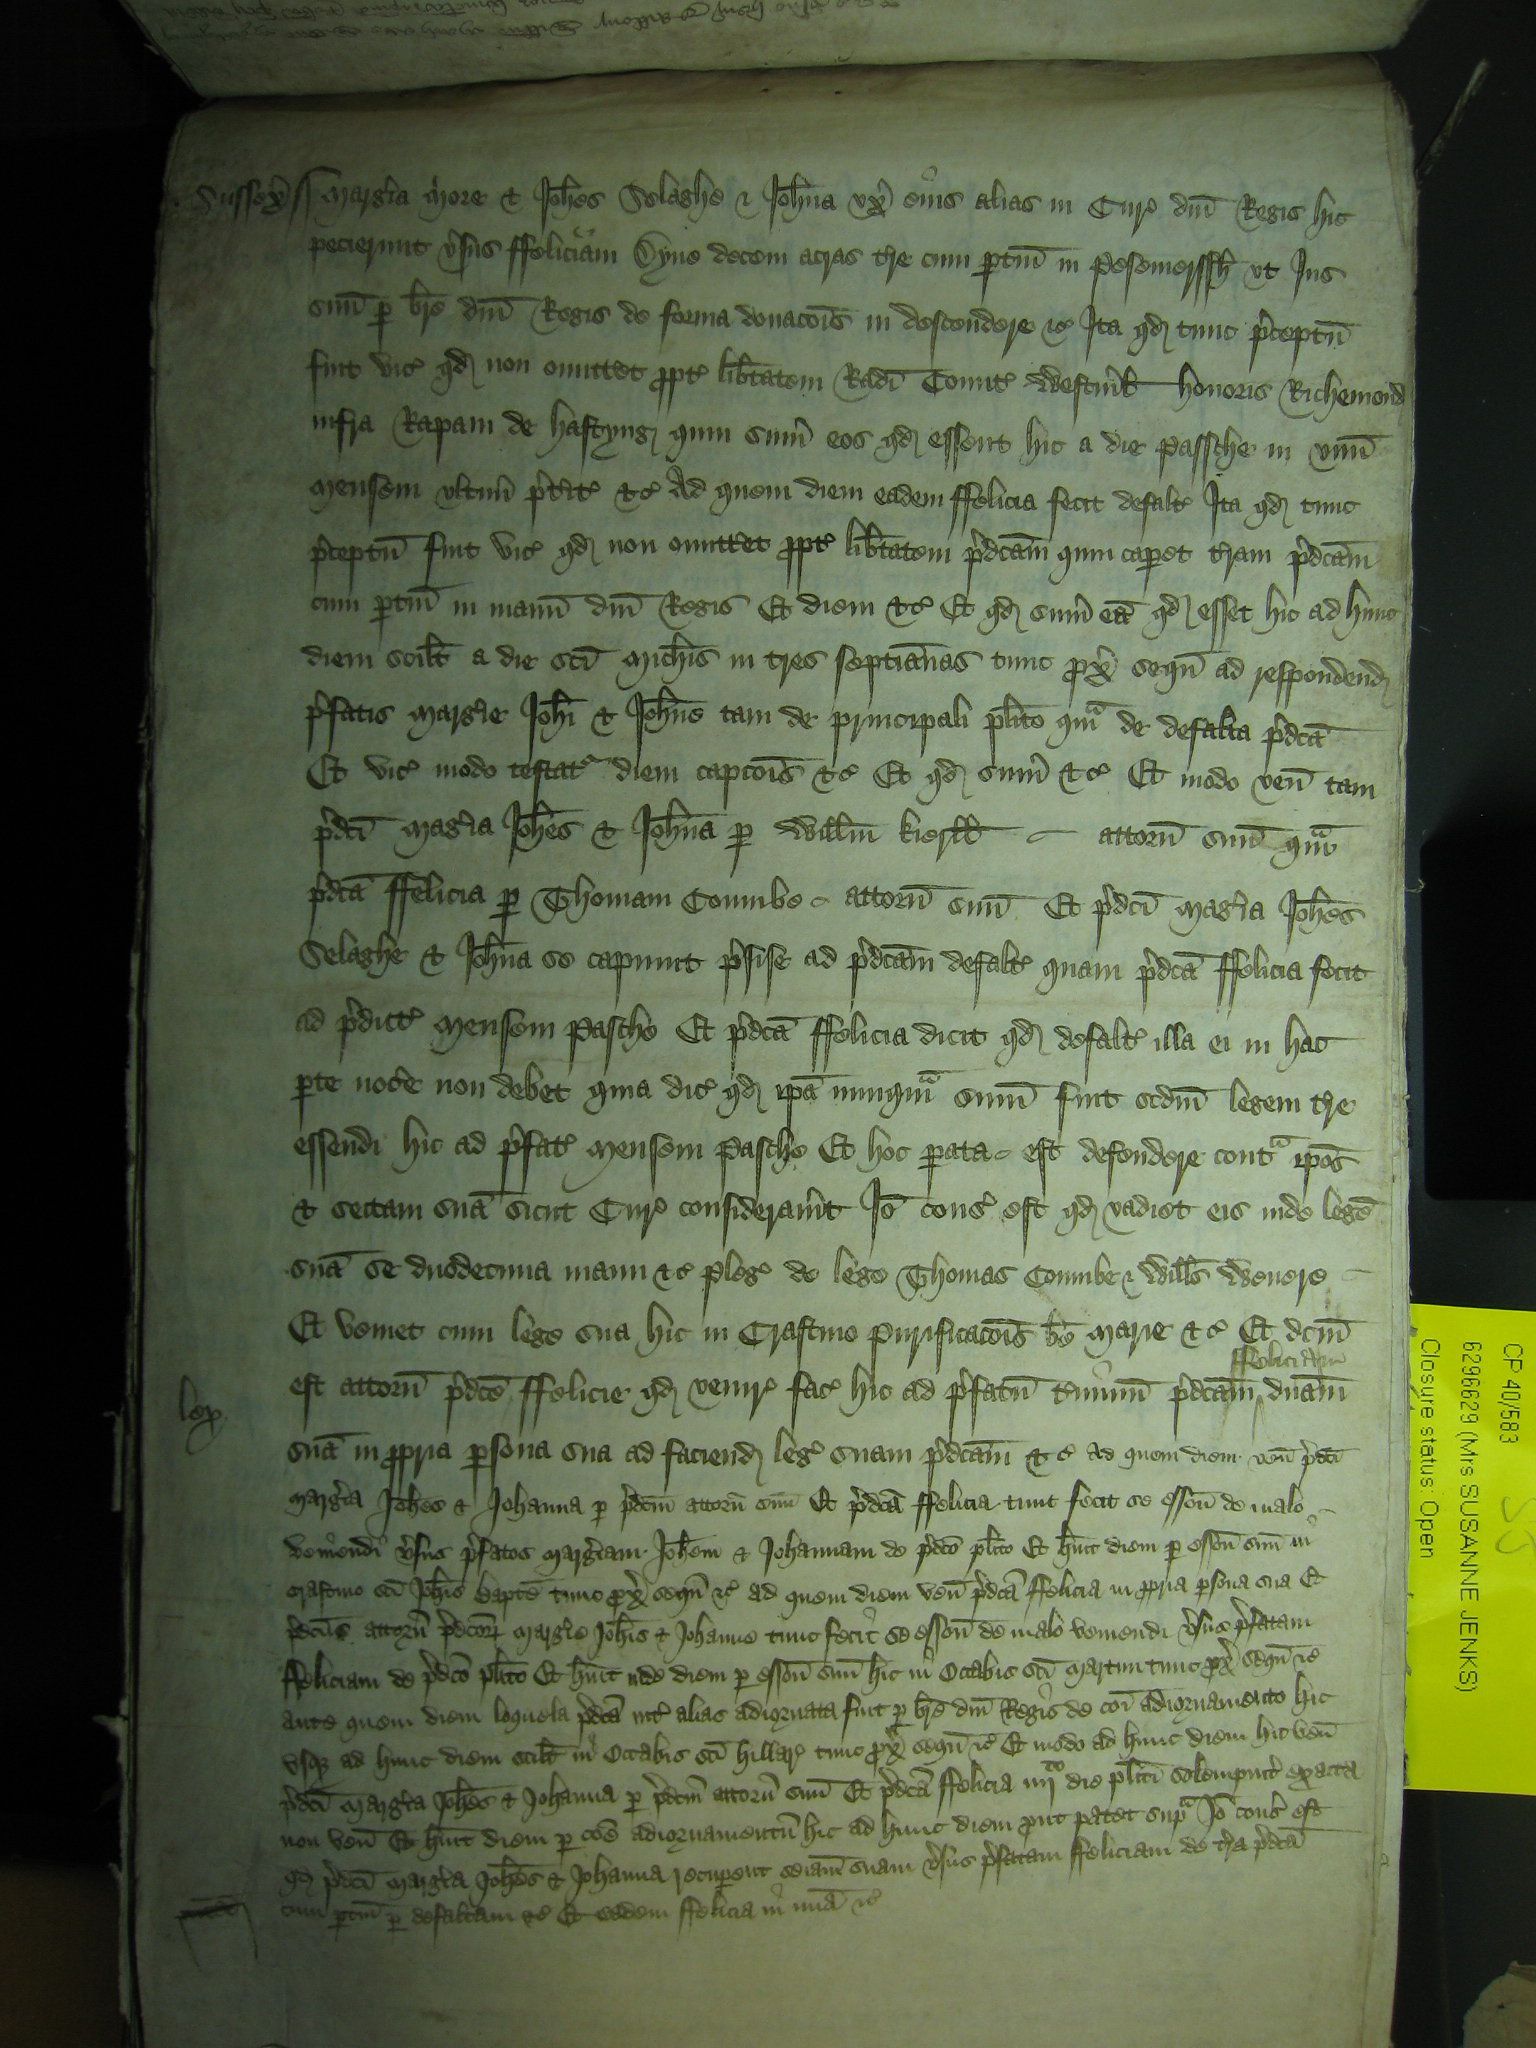 Sussex' ss Marg'ia More & Joh'es Selaghe & Joh'na vx' eius alias in Cur' d'ni Regis hic
pecierunt v'sus ffeliciam Dyne decem acras t're cum p'tin' in Pesemerssh' vt Jus
suu' p' br'e d'ni Regis de forma donac'ois in descendere &c' Ita q'd tunc p'ceptu'
fuit vic' q'd non omittet p'pt' lib'tatem Rad'i Comit' Westm'l' honoris Richemond
infra Rapam de hastyng' quin sum' eos q'd essent hic a die Passche in vnu'
mensem vltim' p't'it' &c' Ad quem diem eadem ffelicia fecit defalt' Ita q'd tunc
p'ceptu' fuit vic' q'd non omittet p'pt' lib'tatem p'dcam quin caperet t'ram p'dcam
cum p'tin' in manu' d'ni Regis Et diem &c' Et q'd sum' ea' q'd esset hic ad hunc
diem scil't a die sc'i Mich'is in tres septimanas tunc p'x' sequ' ad respondend'
p'fatis Marg'ie Joh'i & Joh'ne tam de principali pl'ito qu'm de defalta p'dca'
Et vic' modo testat' diem capc'ois &c' Et q'd sum' &c' Et modo ven' tam
p'dci Marg'ia Joh'es & Joh'na p' Will'm attorn' suu' qu'm
p'dca' ffelicia p' Thomam Coumbe attorn' suu' Et p'dci Marg'ia Joh'es
Selaghe & Joh'na se capiunt p'cise ad p'dcam defalt' quam p'dca' ffelicia fecit
ad p'dict' mensem Pasche Et p'dca' ffelicia dicit q'd defalt' illa ei in hac
p'te noc'e non debet quia dic' q'd ip'a nunqu'm sum' fuit scdm legem t're
essendi hic ad p'fat' mensem Pasche Et hoc parata est defendere cont'a ip'os
& sectam sua' sicut Cur' considerav'it Jo' cons' est q'd vadiet eis inde lege'
sua' se duodecima manu &c' pleg' de lege Thomas Coumbe & Will's Wenere
Et veniet cum lege sua hic in Crastino Purificac'ois b'e Marie &c' Et dcm
ffeliciam
est attorn' p'dce ffelicie q'd venir' fac' hic ad p'fatu' t'minu' p'dcam dnam
lex
sua' in p'pria p'sona sua ad faciend' leg' suam p'dcam &c' ad quem diem ven' p'dci
Marg'ia Joh'es & Johanna p' p'dcm attorn' suu' Et p'dca ffelicia tunc fecit se esson' de malo
veniendi v'sus p'fatos Marg'iam Joh'em & Johannam de p'dco pl'ito Et h'uit diem p' esson' suu' in
crastino sc'i Joh'is bapt'e tunc p'x' sequ' &c' ad quem diem ven' p'dca ffelicia in p'pria p'sona sua Et
p'dcus attorn' p'dcor' Marg'ie Joh'is & Johanne tunc fecit se esson' de malo veniendi v'sus p'fatam
ffeliciam de p'dco pl'ito Et h'uit inde diem p' esson' suu' hic in Octabis sc'i Martini tunc p'x' sequ' &c'
ante quem diem loquela p'dca int' alias adiornata fuit p' br'e d'ni Regis de co'i adiornamento hic
vsq' ad hunc diem scil't in Octabis sc'i hillar' tunc p'x' sequ' &c' Et modo ad hunc diem hic ven'
p'dci Marg'ia Joh'es & Johanna p' p'dcm attorn' suu' Et p'dca ffelicia iiijto die pl'iti solempnit' exacta
non ven' Et h'uit diem p' co'e adiornamentu' hic ad hunc diem p'ut patet sup'a Jo' cons' est
q'd p'dci Marg'ia Joh'es & Johanna recup'ent se'iam suam v'sus p'fatam ffeliciam de t'ra p'dca'
cum p'tin' p' defaltam &c' Et eadem ffelicia in m'ia &c'
CP 40/583
6296629 (Mrs SUSANNE JENKS)
Closure status: Open